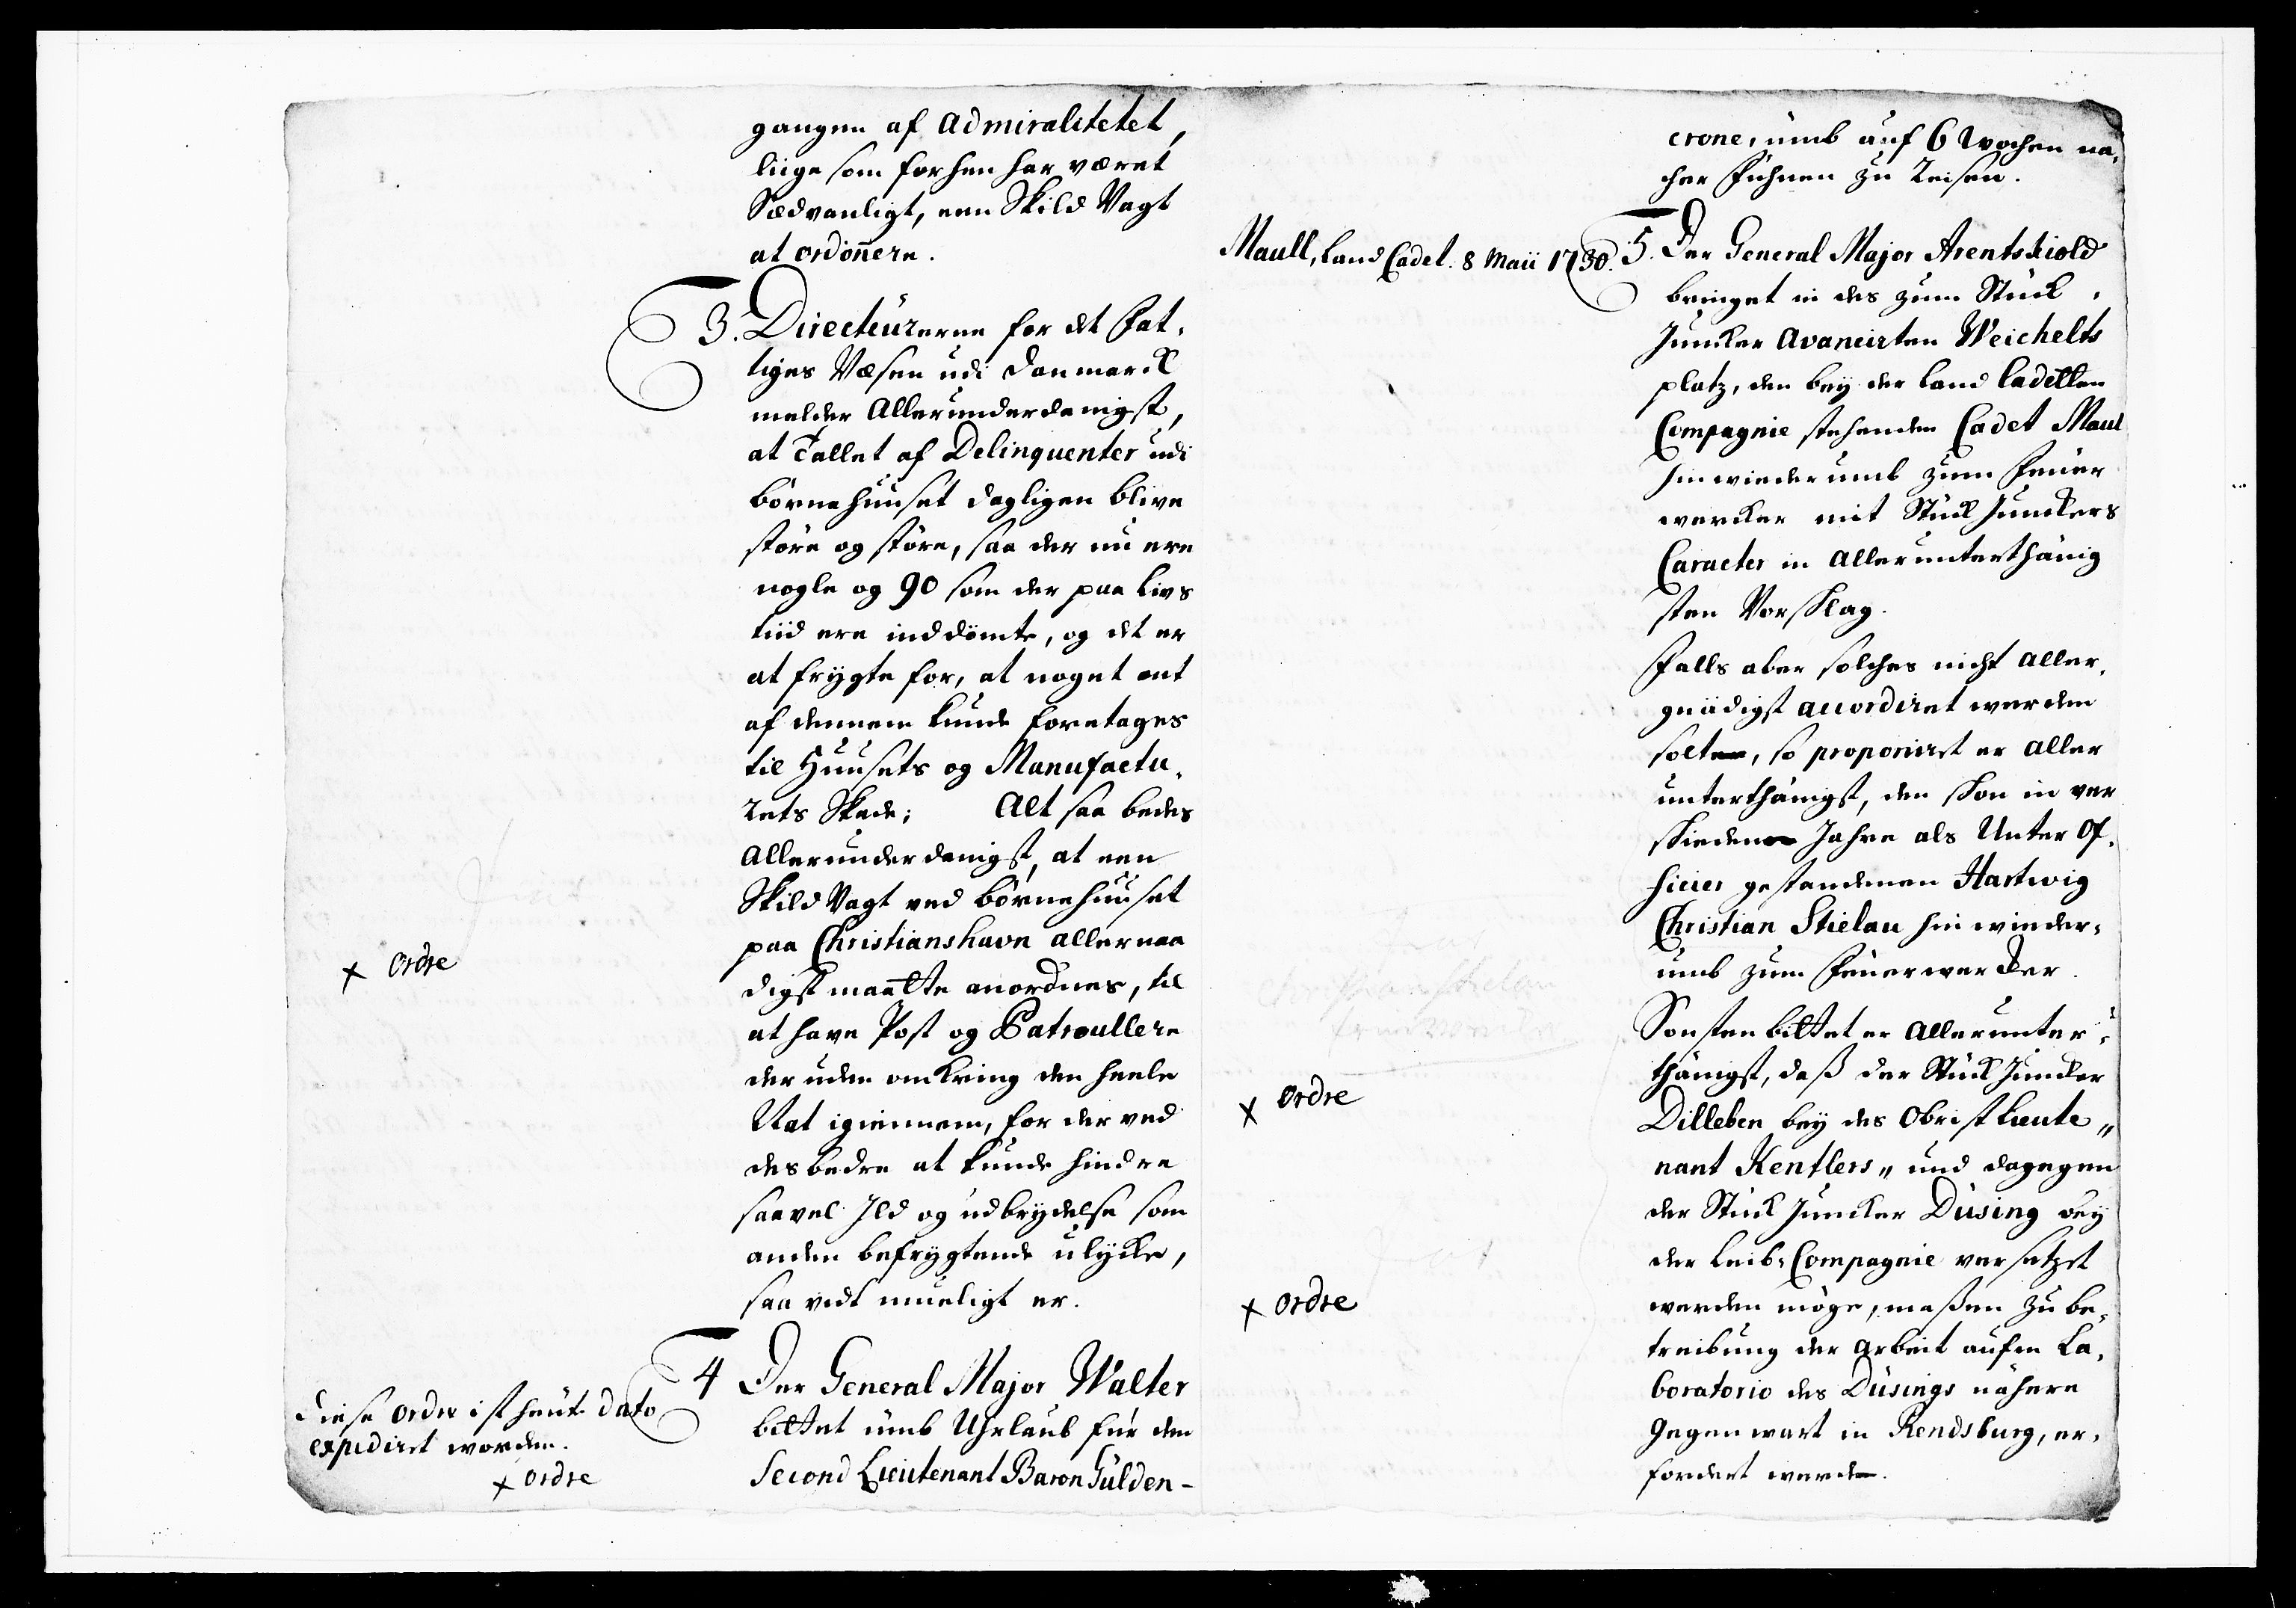 gangen af Admiralitetet,
liige som forhen har været
Sædvanligt, een Skild Vagt
at ordonnere.
3. Directeurerne for det Fat-
tiges Væsen udi Danmarck
melder Allerunderdanigst,
at Tallet af Delinquenter udi
børnehuuset dagligen blive
støre og støre, saa der nu ere
nogle og 90 som der paa Livs
tiid ere inddømte, og det er
at frygte for, at noget ont
af dennem kunde foretages
til Huusets og Manufactu-
rets Skade; Alt saa bedes
Allerunderdanigst, at een
Skild Vagt ved børnehuuset
paa Christianshavn allernaa
digst maatte anordnes, til
at have Post og Patroullere
der uden omkring den heele
Nat igiennem, for der ved
des bedre at kunde hindre
saavel Ild og udbrydelse som
anden befrygtende ulycke,
saa vidt mueligt er.
x ordre
4 Der General Major Walter
bittet umb Uhrlaub für den
Second Lieutenant Baron Gülden-
diese ordre ist heut dato
expediret worden.
x ordre
crone, umb auf 6 Wochen na-
cher Fühnen zu Reisen.
Maull, Land Cadet. 8 Maii 1730.
5. Der General Major Arentskiold
bringet in des zum Stück-
Juncker avancirten Weichelts
platz, den bey der Land Cadetten
Compagnie stehenden Cadet Maul
hinwiederumb zum Feuer
wercker mit Stück Junckers
Caracter in allerunterthänig
sten Vorschlag.
Falls aber solches nicht aller-
gnädigst accordiret werden
solten, so proponirt er aller
unterthänigst, den schon in ver
schiedenen Jahre als Unter Of-
ficier gestandenen Hartwig
Christian Stielau hin wieder-
umb zum Feuerwercker.
x ordre
Sonsten bittet er allerunter-
thänigst, daß der Stück Juncker
Dilleben bey des Obristlieute„
nant Kentlers„ und dagegen
der Stück Juncker Düsing bey
der Leib-Compagnie versetzet
werden möge, maßen zu be-
treibung der arbeit aufm La-
boratorio des Düsings nähere
Gegenwart in Rendsburg, er-
fordert werde.
x ordre